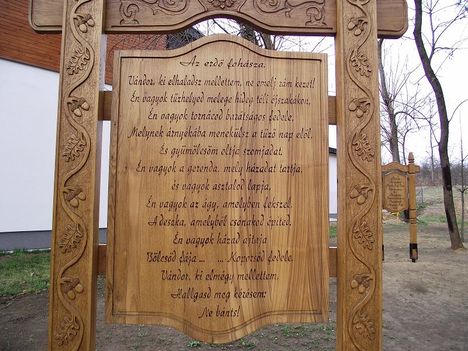 Az erdő fohásza.
Vándor, ki elhaladsz mellettem, ne emelj rám kezet!
Én vagyok tűzhelyed melege hideg téli éjszakákon,
Én vagyok tornácod barátságos fedele,
Melynek árnyékába menekülsz a tűző nap elől,
És gyümölcsöm oltja szomjadat.
Én vagyok a gerenda, mely házadat tartja,
és vagyok asztalod lapja,
Én vagyok az ágy, amelyben fekszel,
A deszka, amelyből csónakod építed.
Én vagyok házad ajtaja
Bölcsőd fája ... ... Koporsód fedele.
Vándor, ki elmégy mellettem,
Hallgasd meg kérésem:
Ne bánts!